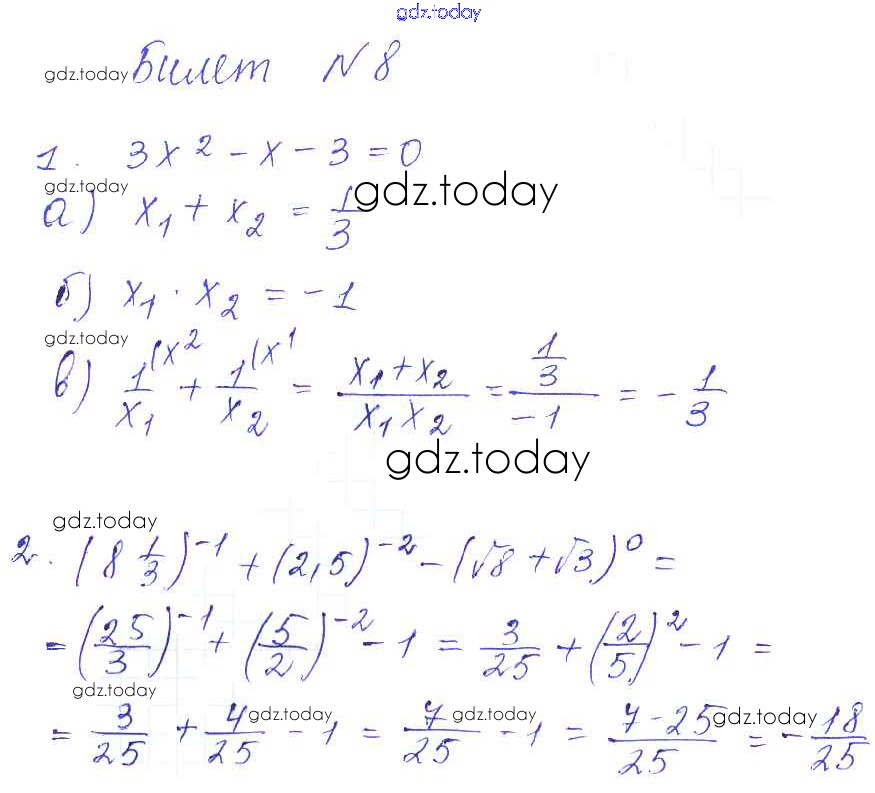 gdz.today
gdz.today Билет N 8
1. 3x² - x - 3 = 0
gdz.today
а) x₁ + x₂ = 1/3 gdz.today
б) x₁ · x₂ = -1
gdz.today
в) 1(x²/x₁ + 1(x¹/x₂ = (x₁+x₂)/(x₁x₂) = (1/3)/(-1) = -1/3
gdz.today
gdz.today
2. (8 1/3)⁻¹ + (2,5)⁻² - (√8 + √3)⁰ =
= (25/3)⁻¹ + (5/2)⁻² - 1 = 3/25 + (2/5)² - 1 =
gdz.today
= 3/25 + 4/25 gdz.today - 1 = 7/25 gdz.today - 1 = (7-25)/25 gdz.today = -18/25